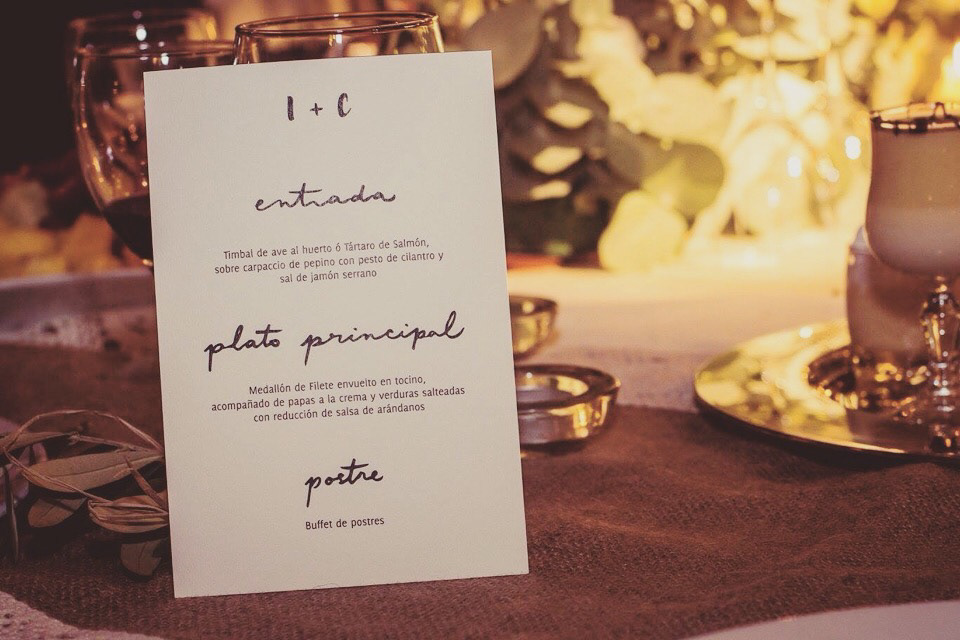 I + C
entrada
Timbal de ave al huerto ó Tártaro de Salmón,
sobre carpaccio de pepino con pesto de cilantro y
sal de jamón serrano
plato principal
Medallón de Filete envuelto en tocino,
acompañado de papas a la crema y verduras salteadas
con reducción de salsa de arándanos
postre
Buffet de postres